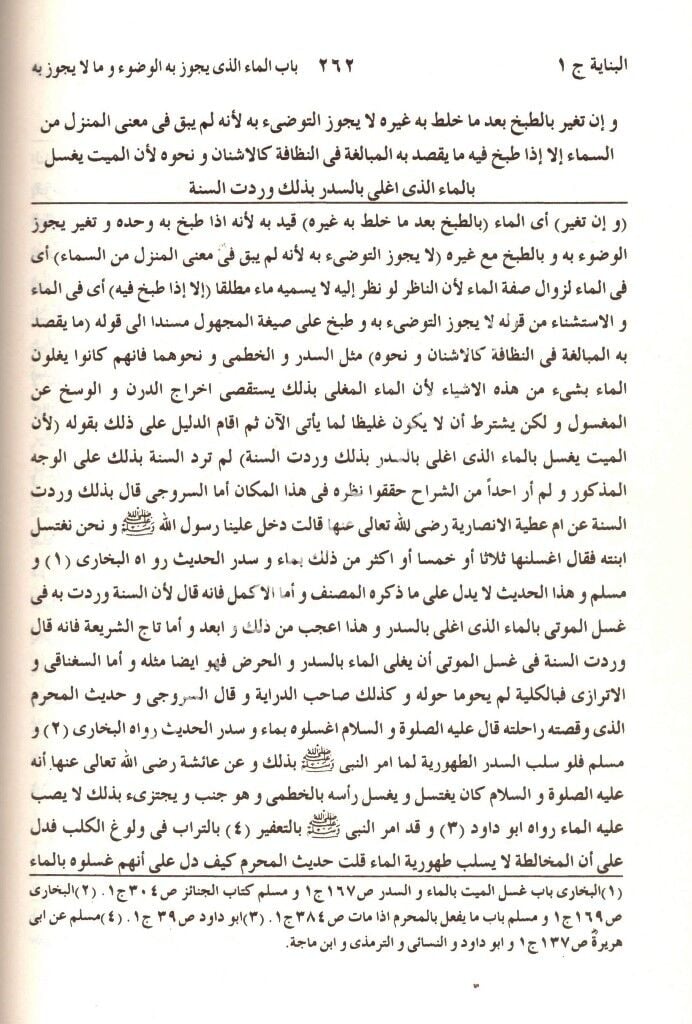 البناية ج ١ ٢٦٢ باب الماء الذى يجوز به الوضوء و ما لا يجوز به
و إن تغير بالطبخ بعد ما خلط به غيره لا يجوز التوضىء به لأنه لم يبق فى معنى المنزل من
السماء إلا إذا طبخ فيه ما يقصد به المبالغة فى النظافة كالاشنان و نحوه لأن الميت يغسل
بالماء الذى اغلى بالسدر بذلك وردت السنة
(و إن تغير) أى الماء (بالطبخ بعد ما خلط به غيره) قيد به لأنه اذا طبخ به وحده و تغير يجوز
الوضوء به و بالطبخ مع غيره (لا يجوز التوضىء به لأنه لم يبق فى معنى المنزل من السماء) أى
فى الماء لزوال صفة الماء لأن الناظر لو نظر إليه لا يسميه ماء مطلقا (إلا إذا طبخ فيه) أى فى الماء
و الاستشناء من قوله لا يجوز التوضىء به و طبخ على صيغة المجهول مسندا الى قوله (ما يقصد
به المبالغة فى النظافة كالاشنان و نحوه) مثل السدر و الخطمى و نحوهما فانهم كانوا يغلون
الماء بشىء من هذه الاشياء لأن الماء المغلى بذلك يستقصى اخراج الدرن و الوسخ عن
المغسول و لكن يشترط أن لا يكون غليظا لما يأتى الآن ثم اقام الدليل على ذلك بقوله (لأن
الميت يغسل بالماء الذى اغلى بالسدر بذلك وردت السنة) لم ترد السنة بذلك على الوجه
المذكور و لم أر احداً من الشراح حققوا نظره فى هذا المكان أما السروجى قال بذلك وردت
السنة عن ام عطية الانصارية رضى لله تعالى عنها قالت دخل علينا رسول الله ﷺ و نحن نغتسل
ابنته فقال اغسلنها ثلاثا أو خمسا أو اكثر من ذلك بماء و سدر الحديث رو اه البخارى (١) و
مسلم و هذا الحديث لا يدل على ما ذكره المصنف و أما الاكمل فانه قال لأن السنة وردت به فى
غسل الموتى بالماء الذى اغلى بالسدر و هذا اعجب من ذلك و ابعد و أما تاج الشريعة فانه قال
وردت السنة فى غسل الموتى أن يغلى الماء بالسدر و الحرض فهو ايضا مثله و أما السغناقى و
الاترازى فبالكلية لم يحوما حوله و كذلك صاحب الدراية و قال السروجى و حديث المحرم
الذى وقصته راحلته قال عليه الصلوة و السلام اغسلوه بماء و سدر الحديث رواه البخارى (٢) و
مسلم فلو سلب السدر الطهورية لما امر النبى ﷺ بذلك و عن عائشة رضى الله تعالى عنها أنه
عليه الصلوة و السلام كان يغتسل و يغسل رأسه بالخطمى و هو جنب و يجتزىء بذلك لا يصب
عليه الماء رواه ابو داود (٣) و قد امر النبى ﷺ بالتعفير (٤) بالتراب فى ولوغ الكلب فدل
على أن المخالطة لا يسلب طهورية الماء قلت حديث المحرم كيف دل على أنهم غسلوه بالماء
(١)البخارى باب غسل الميت بالماء و السدر ص١٦٧ج١ و مسلم كتاب الجنائز ص٣٠٤ج١. (٢)البخارى
ص١٦٩ج١ و مسلم باب ما يفعل بالمحرم اذا مات ص٣٨٤ج١. (٣)ابو داود ص٣٩ ج١. (٤)مسلم عن ابى
هريرة ص١٣٧ج١ و ابو داود و النسائى و الترمذى و ابن ماجة.